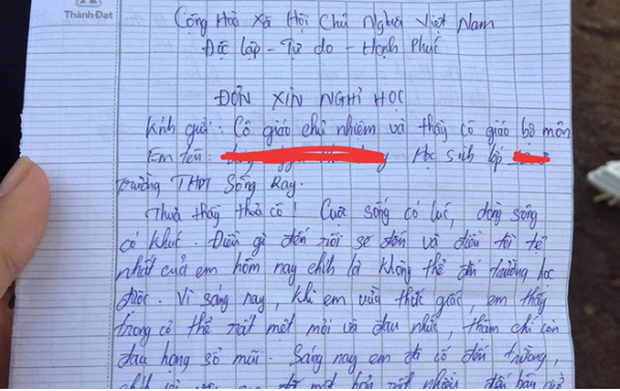 Thành Đạt
Cộng Hoà Xã Hội Chủ Nghĩa Việt Nam
Độc lập - Tự do - Hạnh Phúc
ĐƠN XIN NGHỈ HỌC
Kính gửi: Cô giáo chủ nhiệm và thầy cô giáo bộ môn
Em tên: Học sinh lớp
trường THPT Sông Ray.
Thưa thầy thưa cô! Cuộc sống có lúc, dòng sông
có khúc. Điều gì đến rồi sẽ đến và điều tồi tệ
nhất của em hôm nay chính là không thể đến trường học
được. Vì sáng nay, khi em vừa thức giấc, em thấy
trong cơ thể rất mệt mỏi và đau nhức, thậm chí còn
đau họng sổ mũi. Sáng nay em đã cố đến trường,